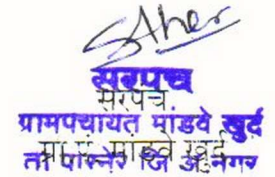 सरपंच
सरपंच
ग्रामपंचायत मांडवे खुर्द
ग्रा.पं. मांडवे खुर्द
ता पारनेर जि अ.नगर